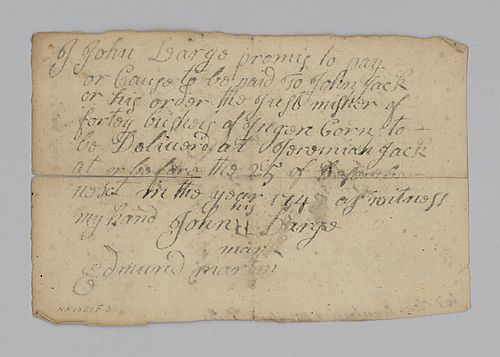 I John Large promis to pay
or Cause to be paid To John Jack
or his order the Just of
fortey bushels of Ingen Corn to
be Deliverd at Jeremiah Jack
at or before the 25 of
next in the year 174 as witness
his
my hand John R Large
mark
Edmund martin